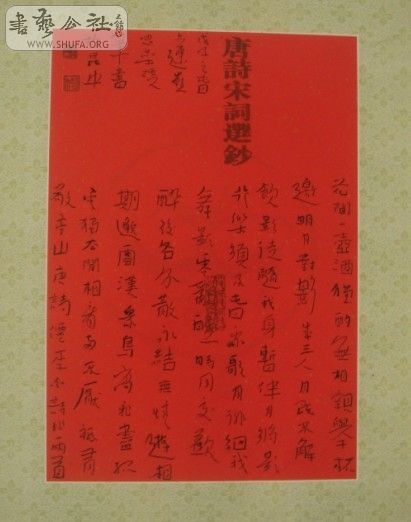 書藝公社
WWW.SHUFA.ORG
唐詩宋詞選鈔
花間一壺酒獨酌無相親舉杯
邀明月對影成三人月既不解
飲影徒隨我身暫伴月將影
行樂須及春我歌月徘徊我
舞影零亂醒時同交歡
醉後各分散永結無情遊相
期邈雲漢衆鳥高飛盡孤
雲獨去閒相看兩不厭祇有
敬亭山唐詩李白詩兩首